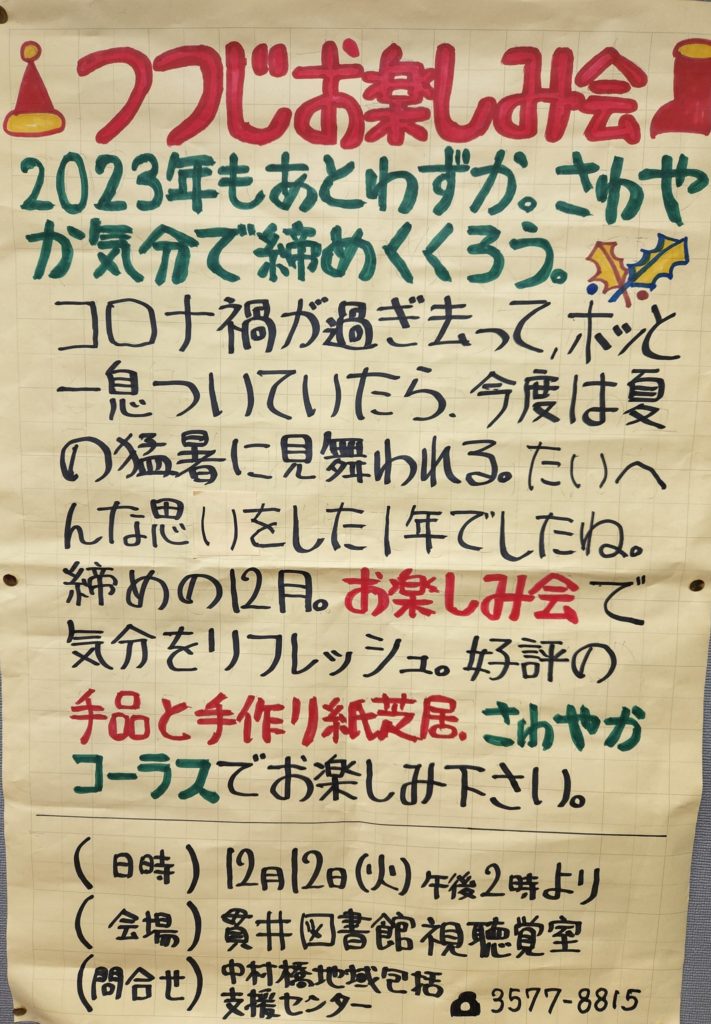 つつじお楽しみ会
2023年もあとわずか。さわや
か気分で締めくくろう。
コロナ禍が過ぎ去って,ホッと
一息ついていたら、今度は夏
の猛暑に見舞われる。たいへ
んな思いをした1年でしたね。
締めの12月。お楽しみ会で
気分をリフレッシュ。好評の
手品と手作り紙芝居、さわやか
コーラスでお楽しみ下さい。
(日時) 12月12日(火)午後2時より
(会場) 貫井図書館視聴覚室
(問合せ) 中村橋地域包括
支援センター ☎3577-8815